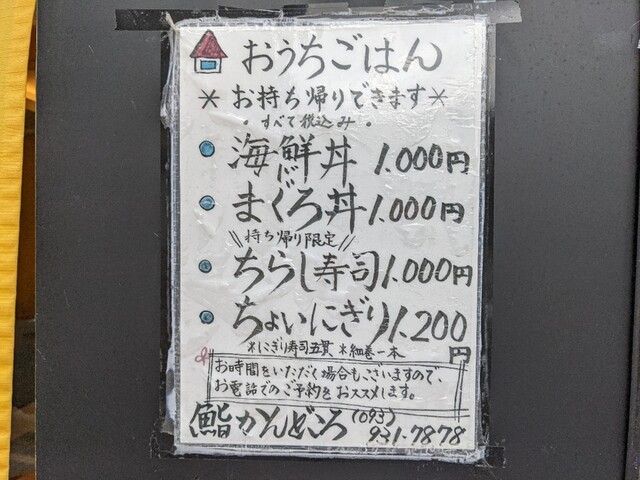 おうちごはん
＊お持ち帰りできます＊
・すべて税込み・
海鮮丼 1.000円
まぐろ丼 1.000円
\\持ち帰り限定//
ちらし寿司 1.000円
ちょいにぎり 1.200円
*にぎり寿司五貫 *細巻一本
お時間をいただく場合もございますので、
お電話でのご予約をおススメします。
鮨かんどころ (093)
931-7878